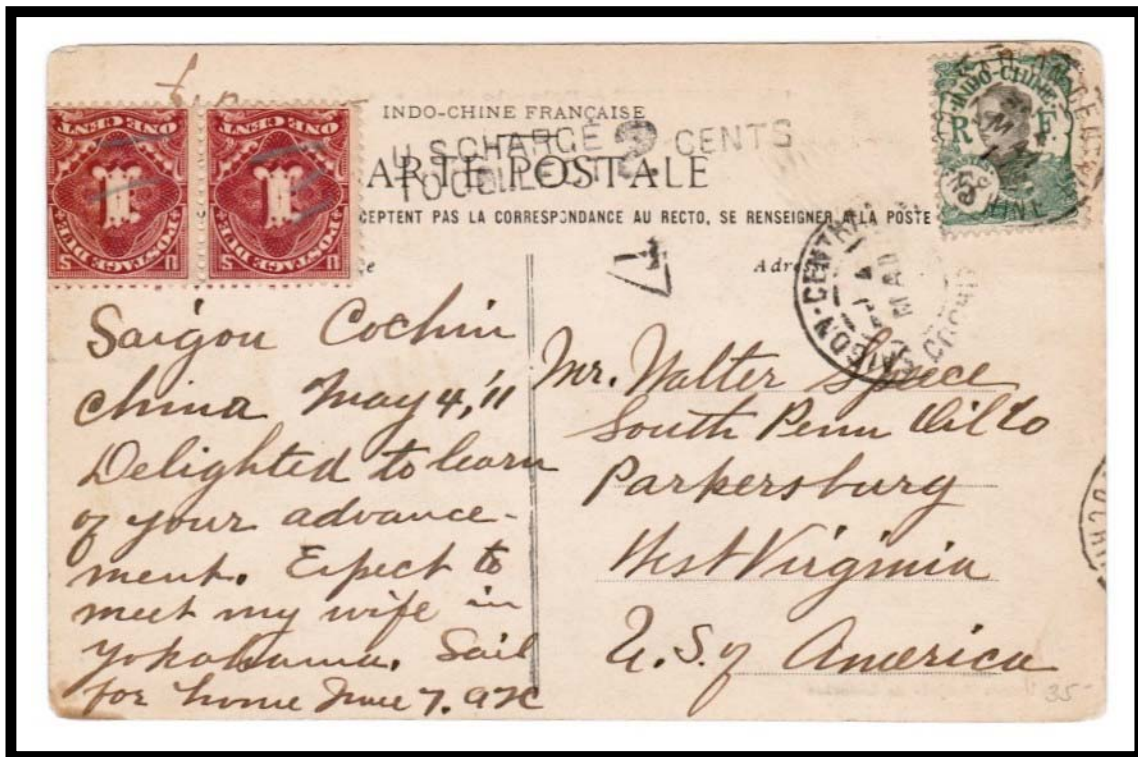 INDO-CHINE FRANÇAISE
U.S. CHARGE 2 CENTS
TO COLLECT
ARTE POSTALE
CEPTENT PAS LA CORRESPONDANCE AU RECTO, SE RENSEIGNER A LA POSTE
ONE CENT
1
POSTAGE DUE
U S
ONE CENT
1
POSTAGE DUE
U S
INDO-CHINE
R F
5c
T
Adre
SAIGON-CENTRAL
Saigon Cochin
China May 4, '11
Delighted to learn
of your advance-
ment. Expect to
meet my wife in
Yokohama. Sail
for home June 7.
Mr. Walter
South Penn Oil Co
Parkersburg
West Virginia
U.S. of America
35-